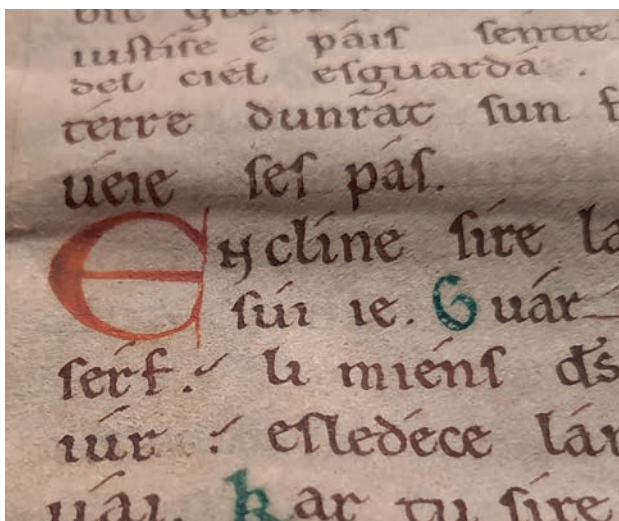 iustise e páis sentre
del ciel esguarda .
térre dunrát sun f
uéie ses pás.
Encline sire la
súi ie. Guár
serf. li miéns ds
iúr : esledéce lár
uái. kar tu sire